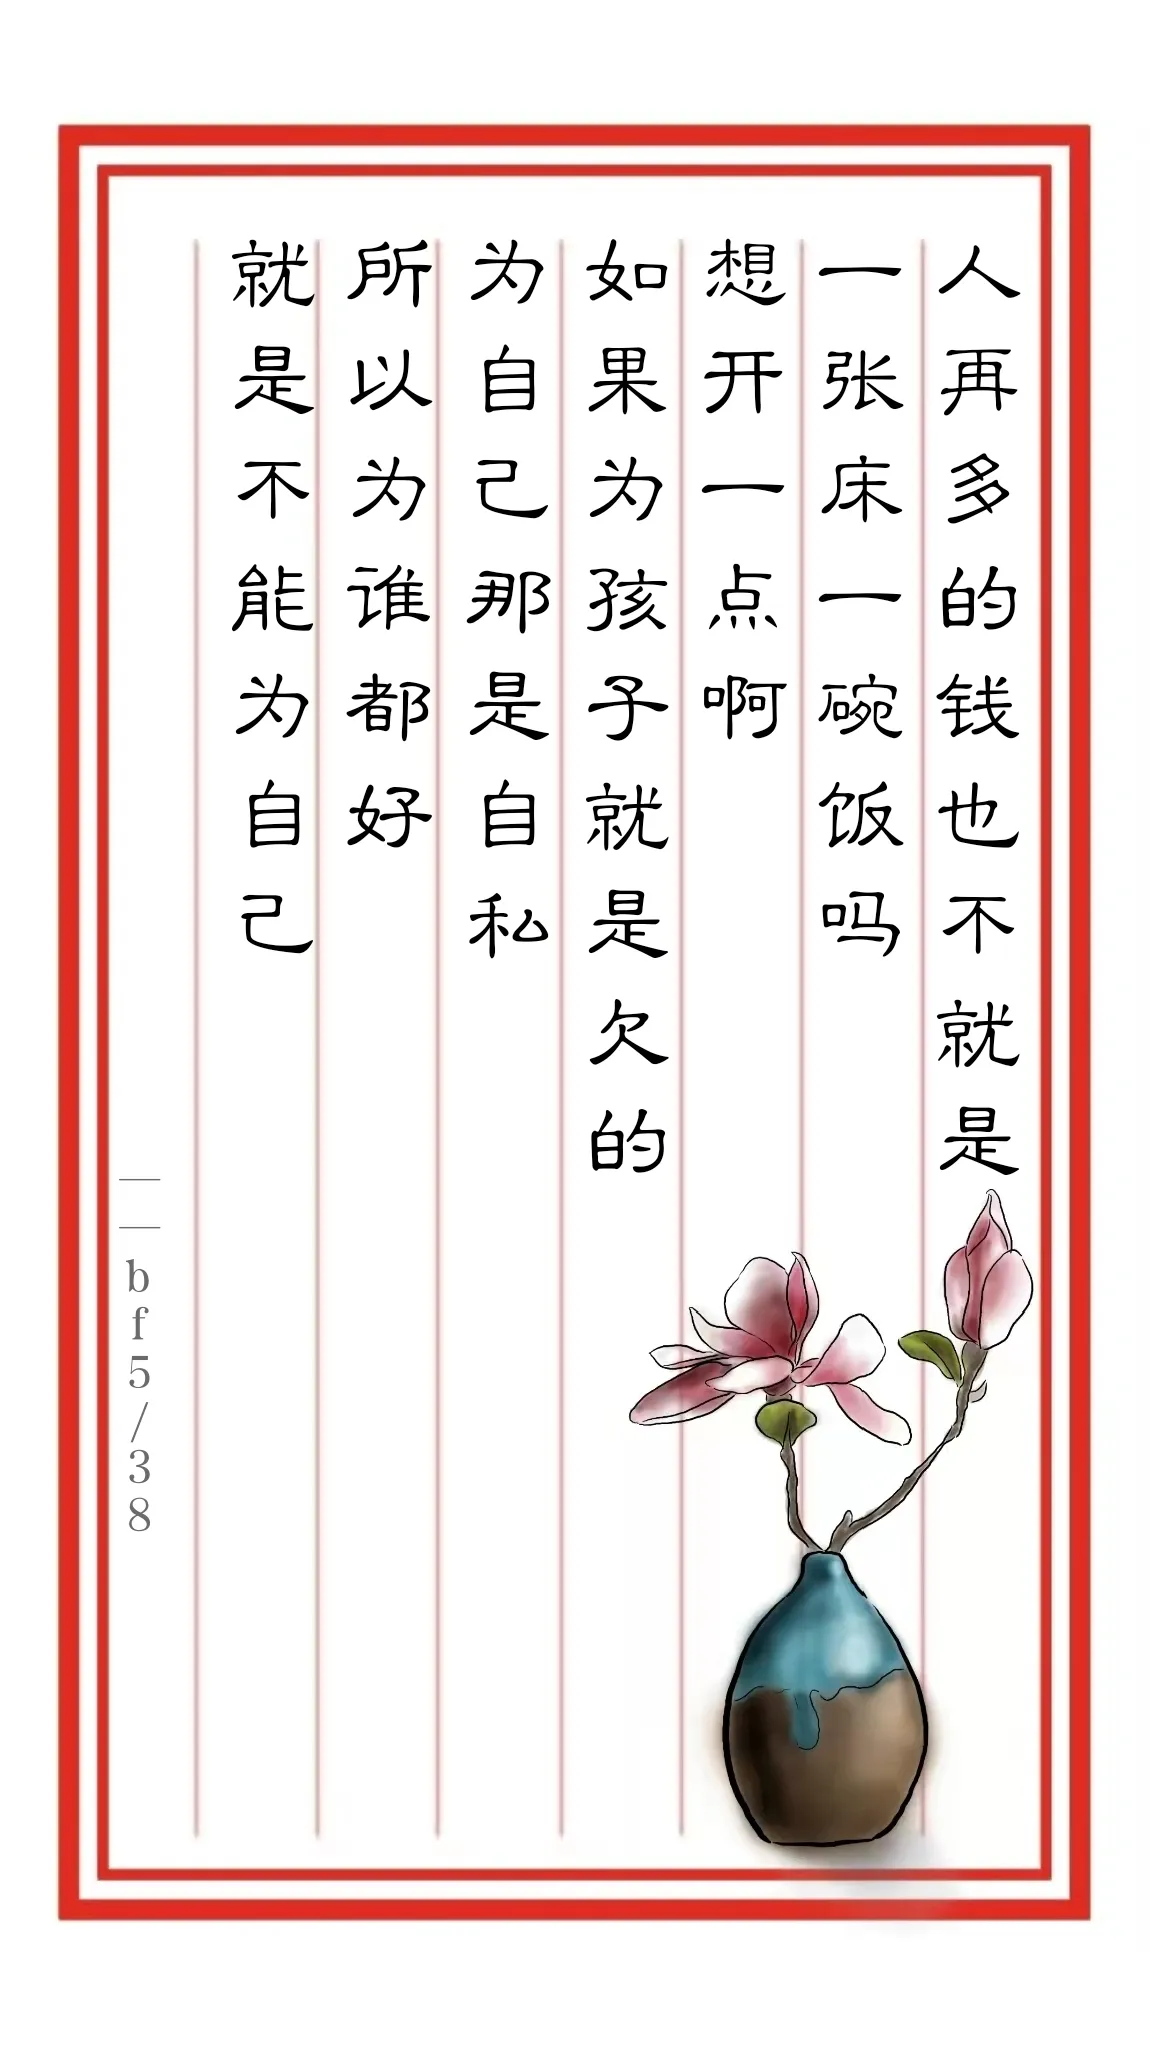 人再多的钱也不就是
一张床一碗饭吗
想开一点啊
如果为孩子就是欠的
为自己那是自私
所以为谁都好
就是不能为自己
——bf5/38